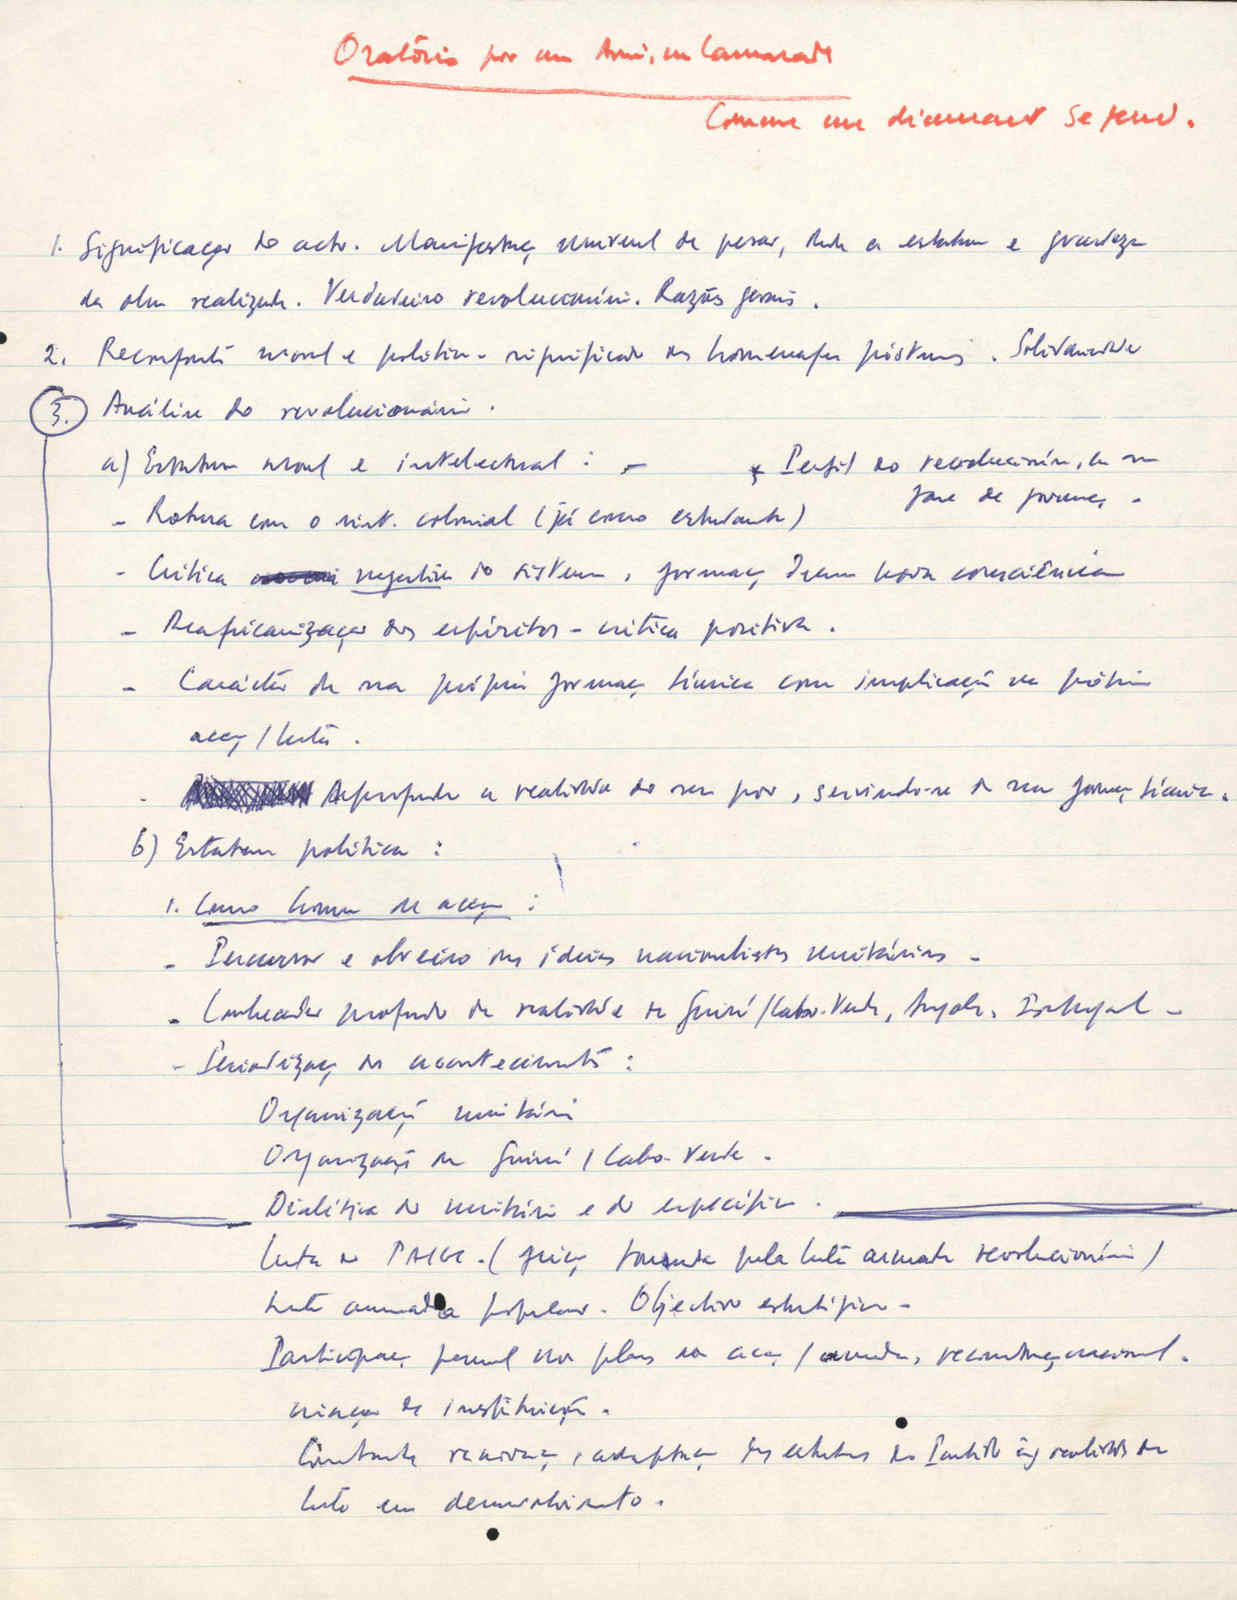 Oratório por um Amigo, um Camarada
Comme un diamant se fend.
1. Significação do acto. Manifestação universal de pesar, dada a estatura e grandeza
da obra realizada. Verdadeiro revolucionário. Razões gerais.
2. Reconforto moral e político - significado das homenagens póstumas. Solidariedade
3. Análise do revolucionário.
a) Estatura moral e intelectual : - Perfil do revolucionário, em sua
fase de formação -
- Rotura com o sist. colonial (já como estudante)
- Crítica negativa do sistema, formação duma nova consciência
- Reafricanização dos espíritos - crítica positiva.
- Carácter da sua própria formação técnica com implicação na própria
acção / luta.
- Aprofunda a realidade do seu povo, servindo-se da sua formação técnica.
b) Estatura política :
1. Como homem de acção :
- Precursor e obreiro das ideias nacionalistas unitárias -
- Conhecedor profundo da realidade da Guiné/Cabo-Verde, Angola, Portugal -
- Periodização dos acontecimentos :
Organização unitária
Organização da Guiné / Cabo-Verde.
Dialéctica do unitário e do específico.
Luta do PAIGC. ( pela luta armada revolucionária)
Luta armada popular. Objectivo estratégico -
Participação pessoal nos planos da acção / armada, reconstrução nacional.
criação de instituições.
Constante renovação, adaptação dos estatutos do Partido às realidades da
luta em desenvolvimento.